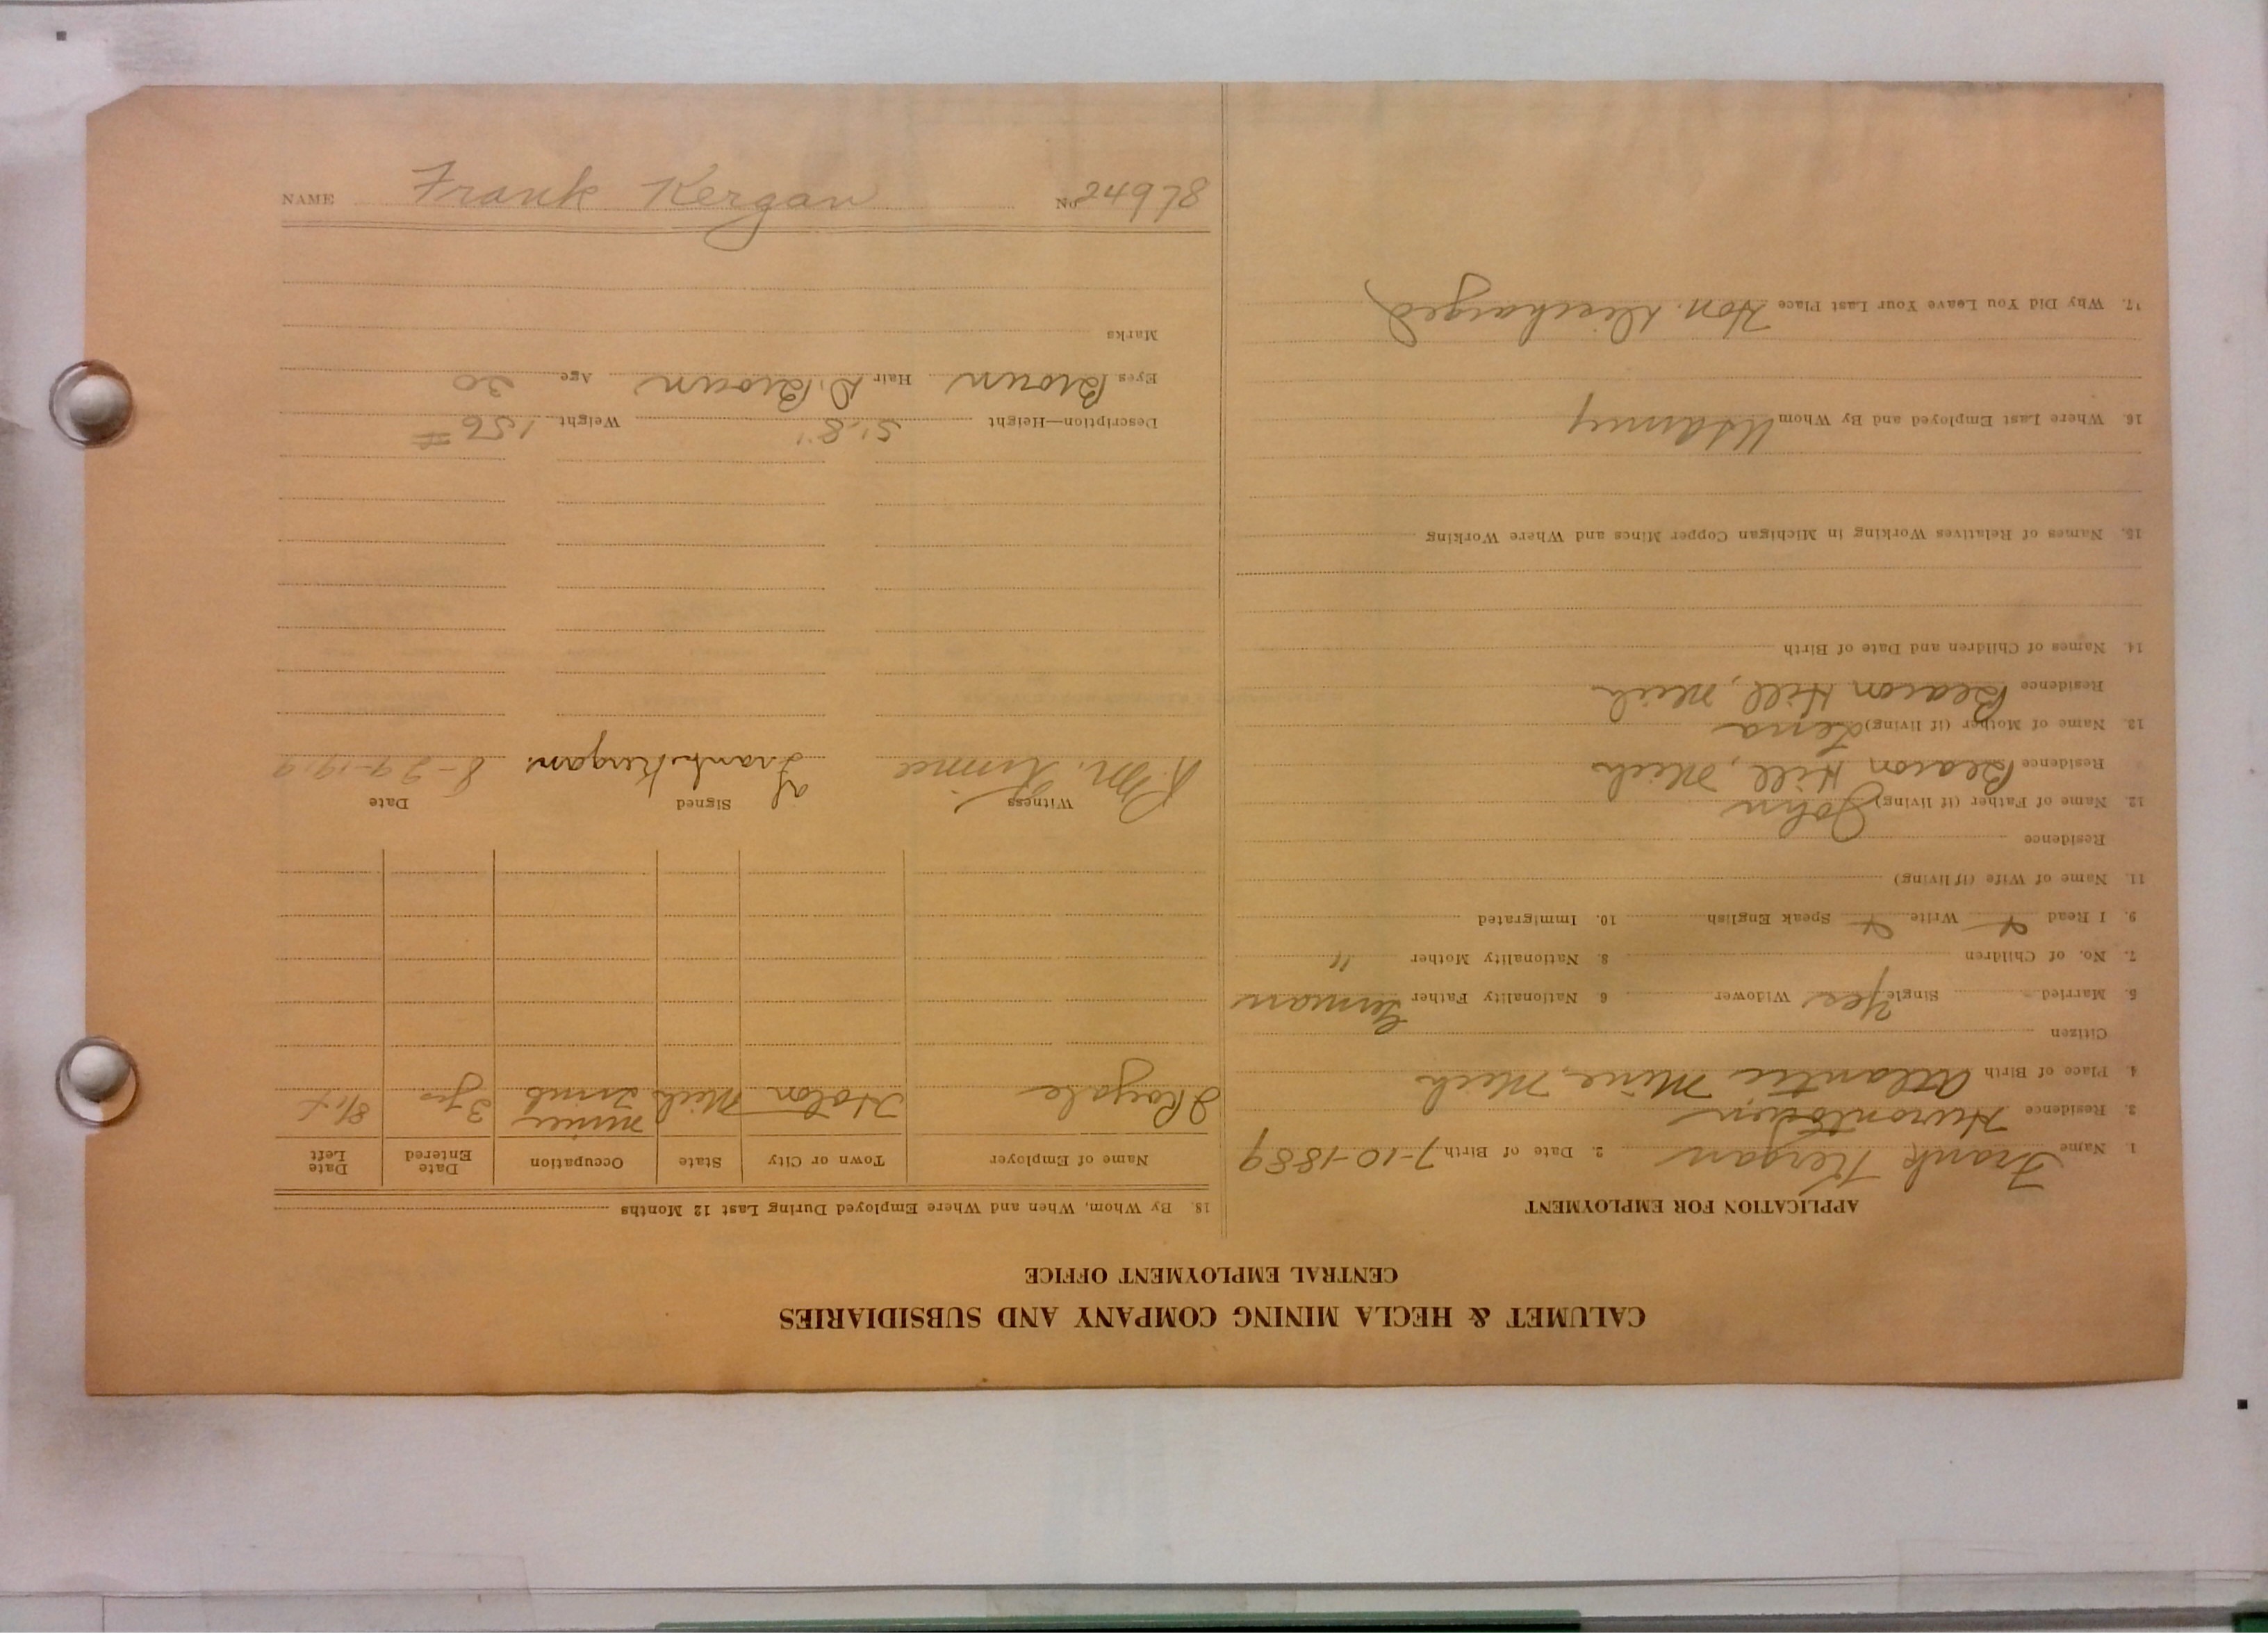 CALUMET & HECLA MINING COMPANY AND SUBSIDIARIES
CENTRAL EMPLOYMENT OFFICE
APPLICATION FOR EMPLOYMENT
1. Name Frank Kergan 2. Date of Birth 7-10-1889
3. Residence Hurontown
4. Place of Birth Atlantic Mine, Mich
Citizen
5. Married Single Yes Widower 6 Nationality Father German
7. No. of Children 8. Nationality Mother "
9. I Read Write Speak English 10. Immigrated
11. Name of Wife (if living)
Residence
12. Name of Father (if living) John
Residence Beacon Hill, Mich
13. Name of Mother (if living) Lena
Residence Beacon Hill, Mich
14. Names of Children and Date of Birth
15. Names of Relatives Working in Michigan Copper Mines and Where Working
16. Where Last Employed and By Whom US Army
17. Why Did You Leave Your Last Place Hon. Discharged
18. By Whom, When and Where Employed During Last 12 Months
Name of Employer Town or City State Occupation Date Entered Date Left
I Royale Mich miner
Witness Signed Date
Frank Kergan 8-29-1919
Description—Height 5'.8" Weight 156 #
Eyes Brown Hair D. Brown Age 30
Marks
NAME Frank Kergan No 24978